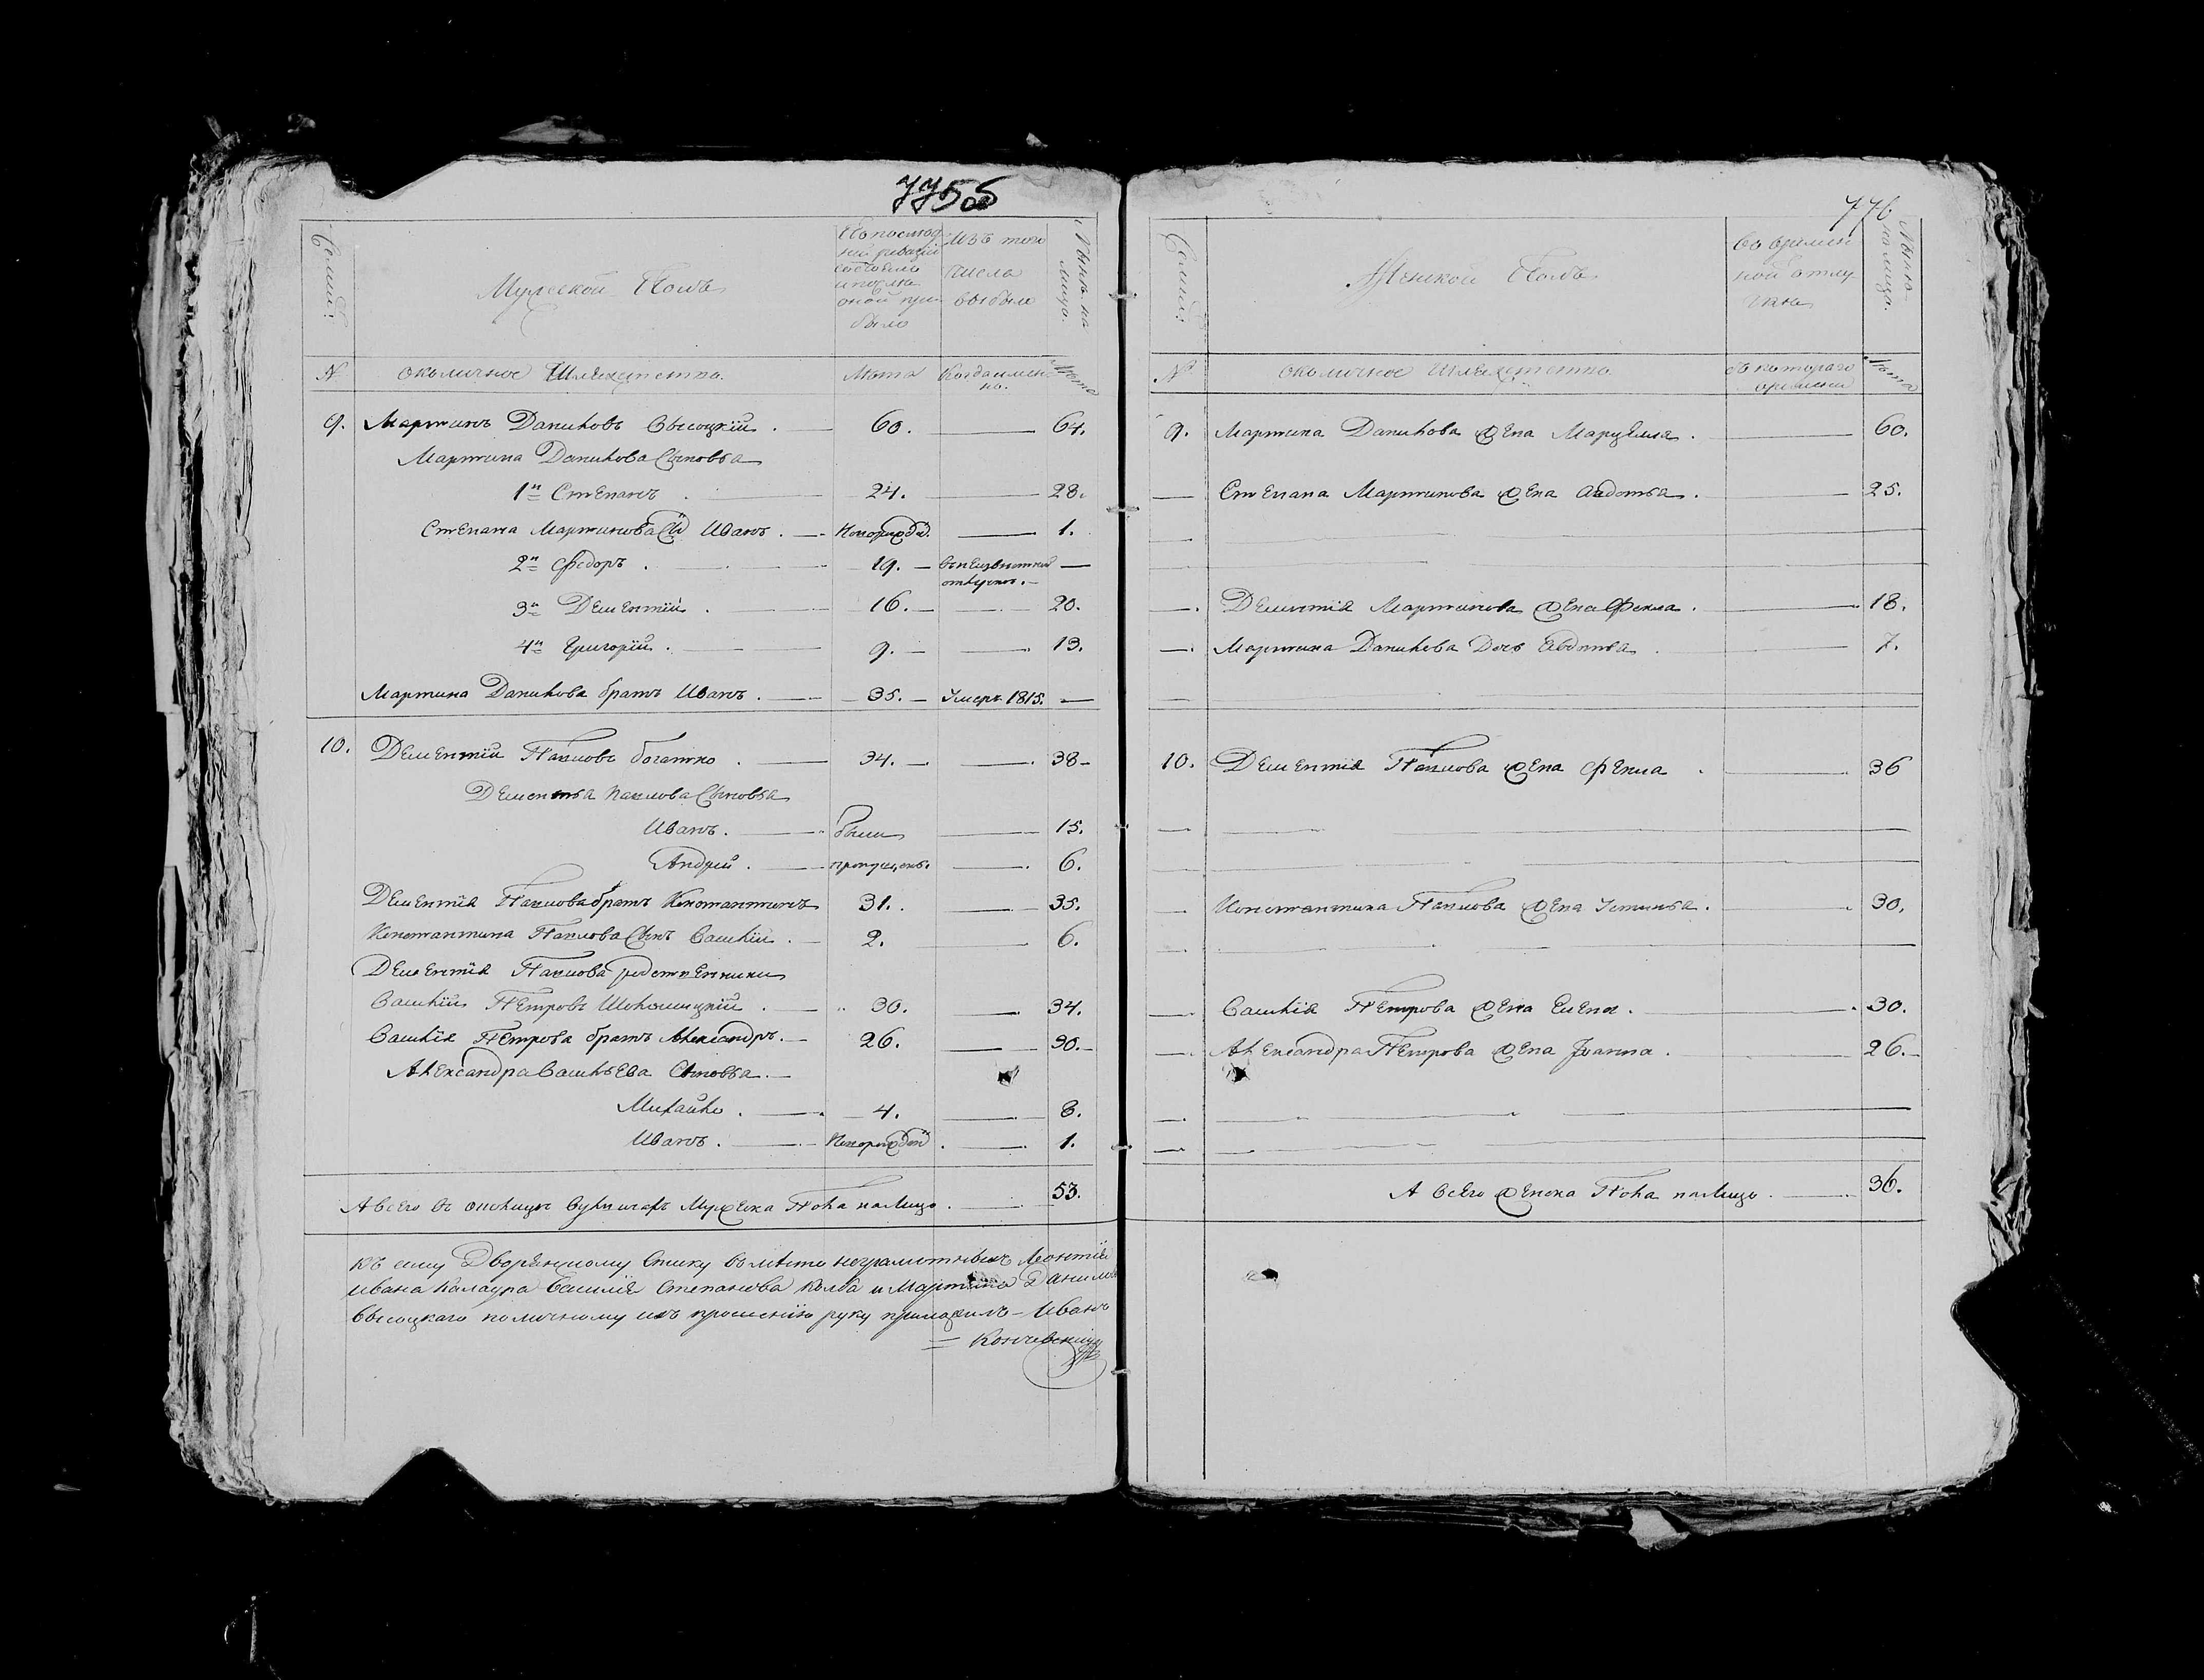 775 об
Семьи:
Мужеской Полъ
По послед
ней ревизіи
состояло
и после
оной при
было
Изъ того
числа
выбыло
Нынѣ на
лицо.
N
околичное Шляхетство.
Лета
Когда имен
но.
Лѣта
9. Мартинъ Даниловъ Высоцкій . 60. 64.
Мартина Данилова Сыновья
1й Степанъ . 24. 28.
Степана Мартинова Сы Иванъ . Новорожд. 1.
2й Федоръ . 19. въ неизвѣстной
отлучке .
3й Дементій . 16. 20.
4й Григорій . 9. 13.
Мартина Данилова братъ Иванъ . 35. Умеръ 1815.
10. Дементій Павловъ богатко . 34. 38
Дементья Павлова Сыновья
Иванъ . были 15.
Андрей . пропущены. 6.
Дементія Павлова братъ Константинъ 31. 35.
Константина Павлова Сынъ Василій . 2. 6.
Дементія Павлова родственники
Василій Петровъ 30. 34.
Василія Петрова братъ Александръ. 26. 30.
Александра Васильева Сыновья .
Михайло . 4. 8.
Иванъ . Новорожден . 1.
А всего въ околице Мужеска Пола налицо . 53.
Къ сему Дворянскому Списку вместо неграмотныхъ Леонтія
Ивана Калаура Василія Степанова Колба и Мартина Данилова
Высоцкаго по личному ихъ прошенію руку приложилъ Иванъ
= Кончевскій
776
Семьи:
Женской Полъ
Во времен
ной отлу
чке
Ныне
на лицо.
N
околичное Шляхетство
Съ котораго
времени
Лѣта
9. Мартина Данилова жена Марцелла . 60.
Степана Мартинова жена Авдотья . 25.
Дементія Мартинова жена Фекла . 18.
Мартина Данилова Дочь Авдотья . 7.
10. Дементія Павлова жена Фекла . 36
Константина Павлова жена Устинья . 30.
Василія Петрова жена Елена . 30.
Александра Петрова жена Іоанна . 26.
А всего женска Пола налицо . 36.